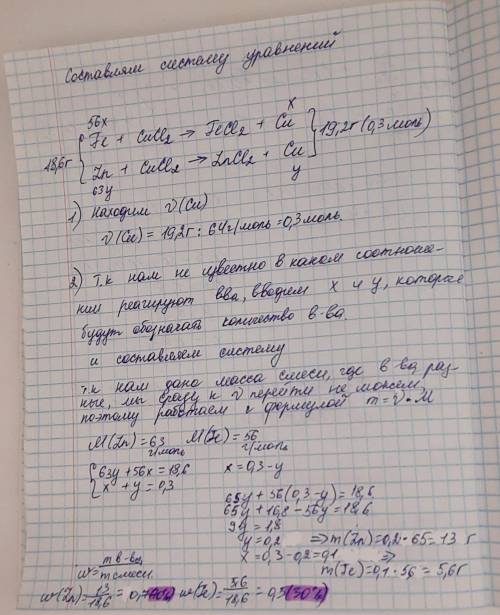 Составляем систему уравнений
56x x
18,6г { Fe + CuCl₂ → FeCl₂ + Cu } 19,2г (0,3 моль)
Zn + CuCl₂ → ZnCl₂ + Cu
63y y
1) Находим ν(Cu)
ν(Cu) = 19,2г : 64г/моль = 0,3 моль.
2) Т.к нам не известно в каком соотноше-
нии реагируют в-ва, вводим x и y, которые
будут обозначать количество в-ва
и составляем систему
т.к нам дана масса смеси, где в-ва раз-
ные, мы сразу к ν перейти не можем,
поэтому работаем с формулой m = ν · M
M(Zn) = 63 г/моль M(Fe) = 56 г/моль
{ 63y + 56x = 18,6 x = 0,3 - y
{ x + y = 0,3
65y + 56(0,3 - y) = 18,6
65y + 16,8 - 56y = 18,6
9y = 1,8
y = 0,2 ⇒ m(Zn) = 0,2 · 65 = 13 г
x = 0,3 - 0,2 = 0,1 ⇒
m(Fe) = 0,1 · 56 = 5,6г
w = m в-ва / m смеси
w(Zn) = 13/18,6 = 0,7 w(Fe) = 5,6/18,6 = 0,3 (30%)